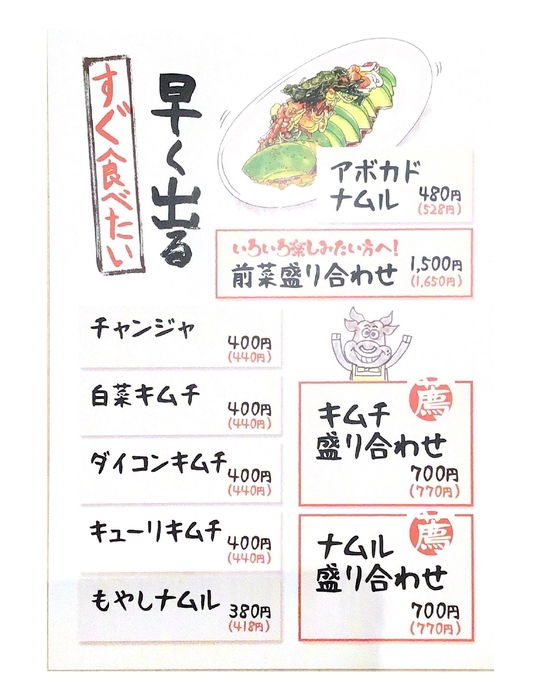 すぐ食べたい
早く出る
アボカド
ナムル 480円
(528円)
いろいろ楽しみたい方へ！
前菜盛り合わせ 1,500円
(1,650円)
チャンジャ
400円
(440円)
白菜キムチ
400円
(440円)
ダイコンキムチ
400円
(440円)
キューリキムチ
400円
(440円)
もやしナムル
380円
(418円)
薦
キムチ
盛り合わせ
700円
(770円)
薦
ナムル
盛り合わせ
700円
(770円)